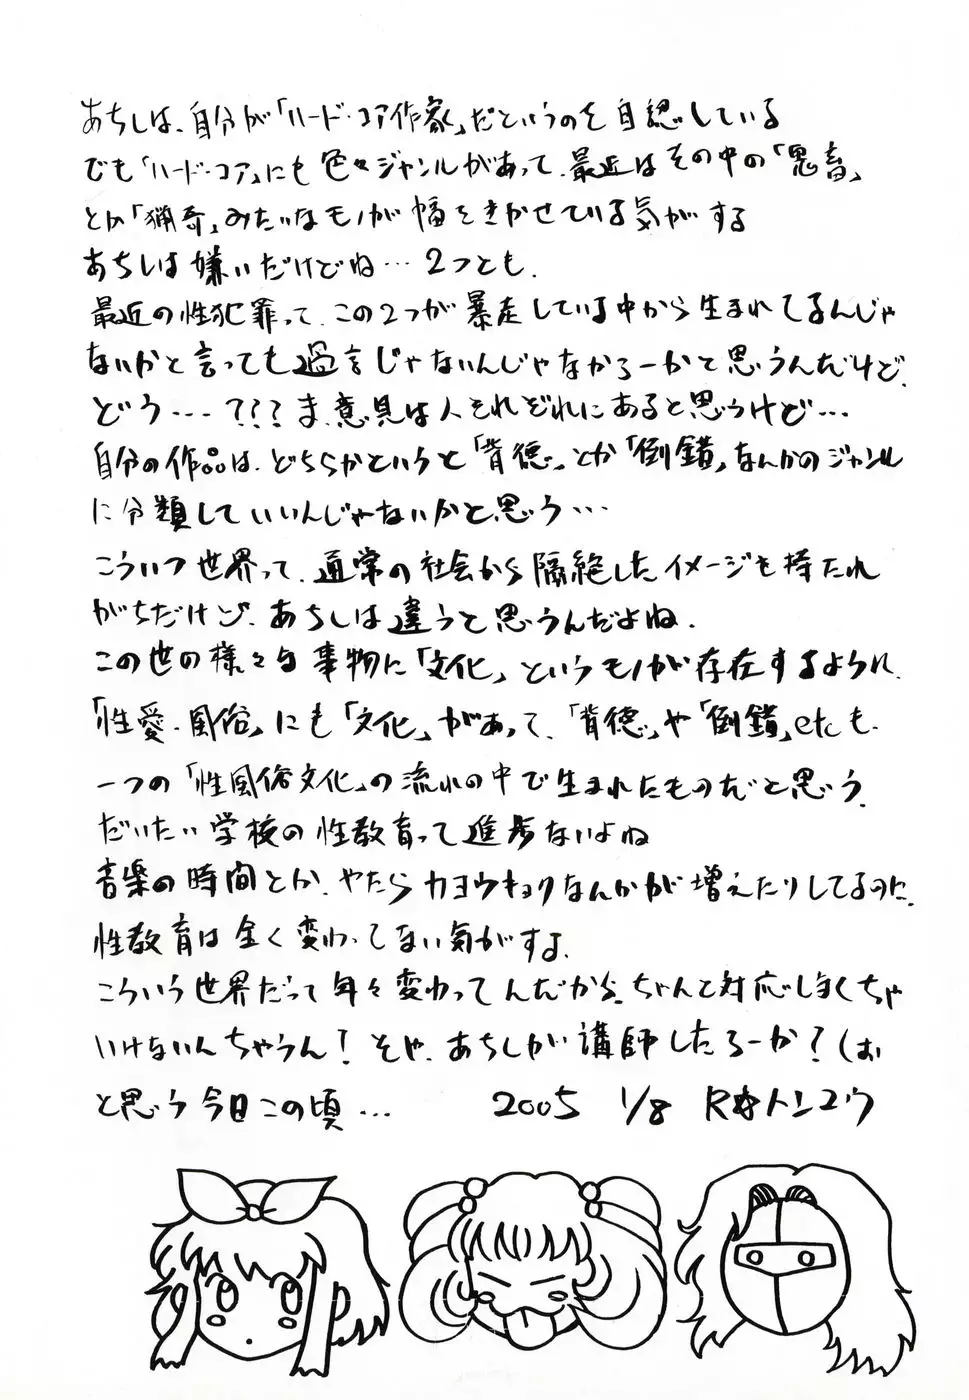 あちしは、自分が「ハード・コア作家」だというのを自認している
でも「ハード・コア」にも色々ジャンルがあって、最近はその中の「鬼畜」
とか「猟奇」みたいなモノが幅をきかせている気がする
あちしは嫌いだけどね…2つとも、
最近の性犯罪って、この2つが暴走している中から生まれてるんじゃ
ないかと言っても過言じゃないんじゃなかろーかと思うんだけど、
どう…・???ま、意見は人それぞれにあると思うけど…
自分の作品は、どちらかというと「背徳」とか「倒錯」なんかのジャンル
に分類していいんじゃないかと思う…
こういつ世界って、通常の社会から隔絶したイメージを持たれ
がちだけど、あちしは違うと思うんだよね、
この世の様々な事物に「文化」というモノが存在するように、
「性愛・風俗」にも「文化」があって、「背徳」や「倒錯」etcも、
一つの「性風俗文化」の流れの中で生まれたものだと思う、
だいたい学校の性教育って進歩ないよね
音楽の時間とか、やたらカヨウキョクなんかが増えたりしてるのに、
性教育は全く変わってない気がする、
こういう世界だって年々変わってんだから、ちゃんと対応しまくちゃ
いけないんちゃうん!そや、あちしが講師したろーか?(お
と思う今日この頃… 2005 1/8